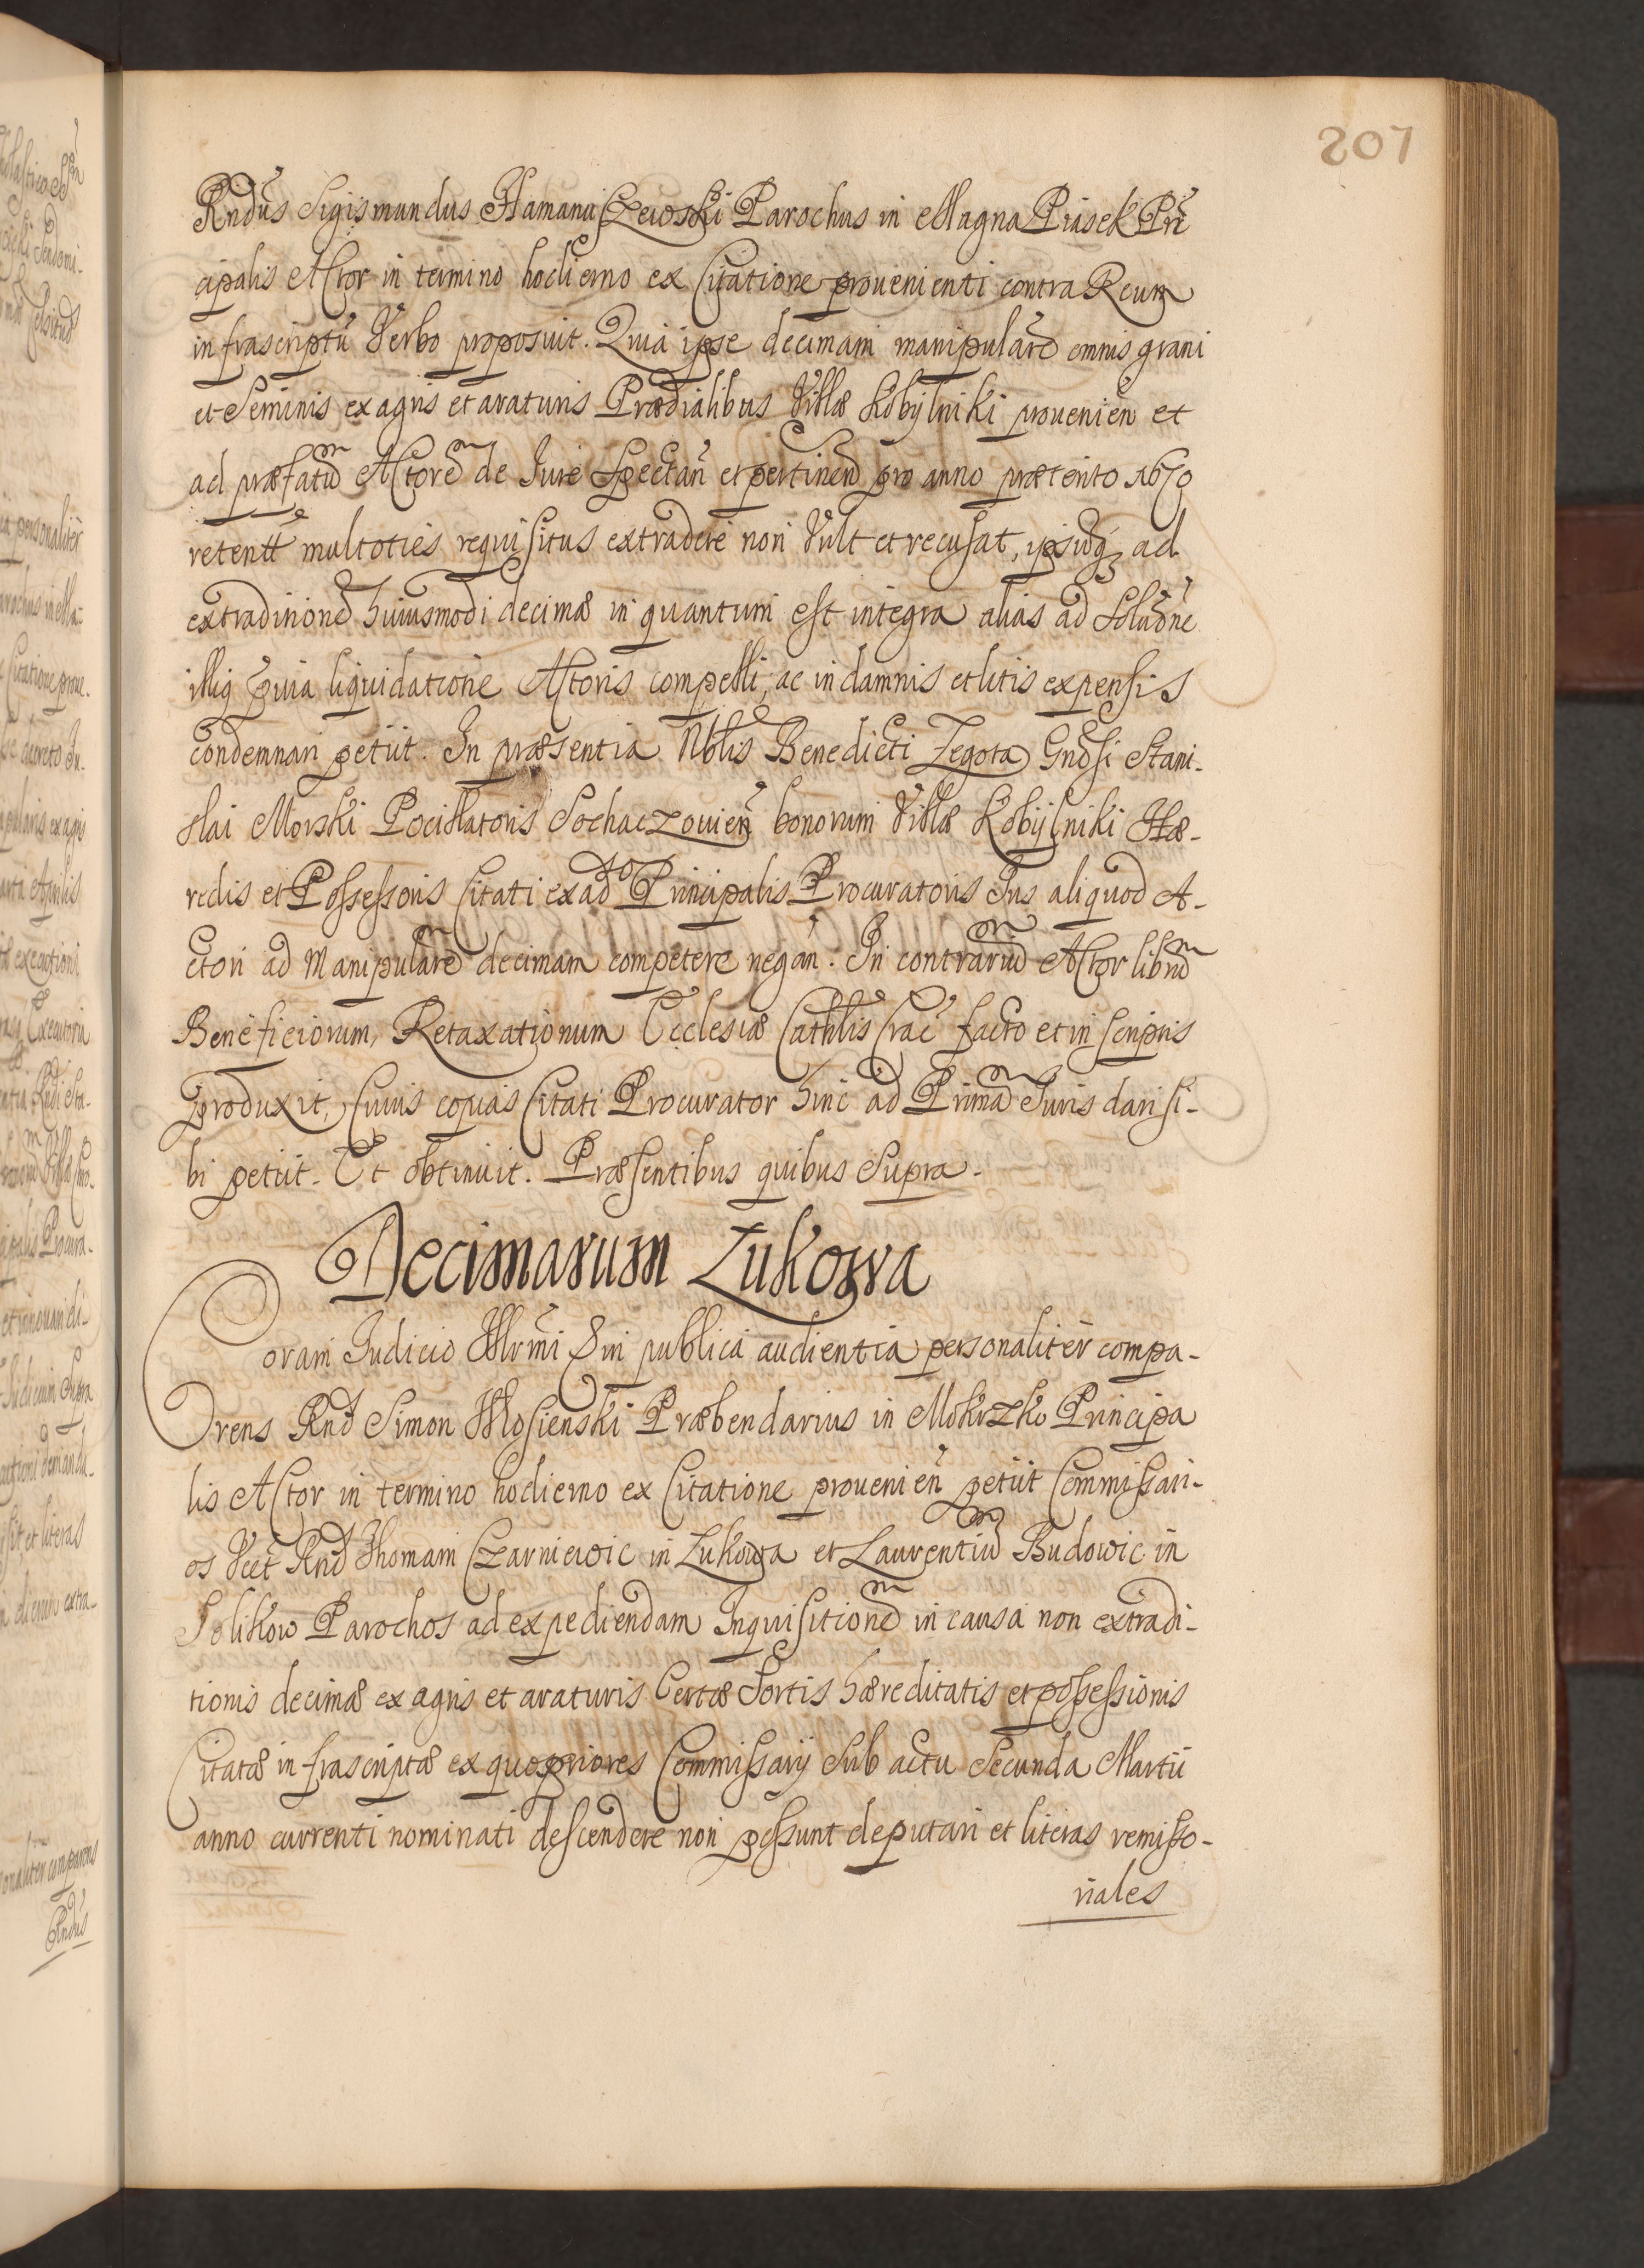 207
Rndus Sigismundus Hamanu Czewski Parochus in Magna Piasek Prĩ
cipalis Actor in termino hodierno ex Citatione provenienti contra Reum
infrascriptũ Verbo proposuit. Quia ipse decimam manipularẽ omnis grani
et Seminis ex agris et araturis Prædialibus Villæ Kobÿlniki provenieñ et
ad præfatũ Actorẽ de Jure Spectañ et pertineñ pro anno præterito 1670
retentt multoties requisitus extradere non Vult et recusat, ipsuq3 ad
extraditionẽ huiusmodi decimæ in quantum est integra alias ad Soluõne
illiq prvia liquidatione Actoris compelli, ac in damnis et litis expensis
condemnari petiit. In præsentia Nblis Benedicti Zegota Gnõsi Stani-
slai Morski Pocillatoris Sochaczovień bonorum Villæ Kobÿlniki Hæ-
redis et Possessoris Citati ex adº Principalis Procuratoris Jus aliquod A-
ctori ad Manipularẽ decimam competere negañ. In contrariũ Actor librũ
Beneficiorum, Retaxationum Ecclesiæ Cathlis Crac facto et in scriptis
produxit, Cuius copias Citati Procurator hinc ad Primã Juris dari si-
bi petiit. Et obtinuit. Præsentibus quibus Supra.
Decimarum Zukowa
Coram Judicio Illrmi Din publica audientia personaliter compa-
rens Rnd Simon Wlosienski Præbendarius in Mokrzko Principa
lis Actor in termino hodierno ex Citatione provenień petiit Commissari-
os Vcet Rnd Thomam Czarniewic in Zukowa et Laurentiũ Budowic in
Solikow Parochos ad expediendam Inquisitionẽ in causa non extradi-
tionis decimæ ex agris et araturis Certæ Sortis hæreditatis et possessionis
Citatæ infrascriptæ ex quo priores Commissarij Sub actu Secunda Martii
anno currenti nominati descendere non possunt deputari et literas remisso-
riales